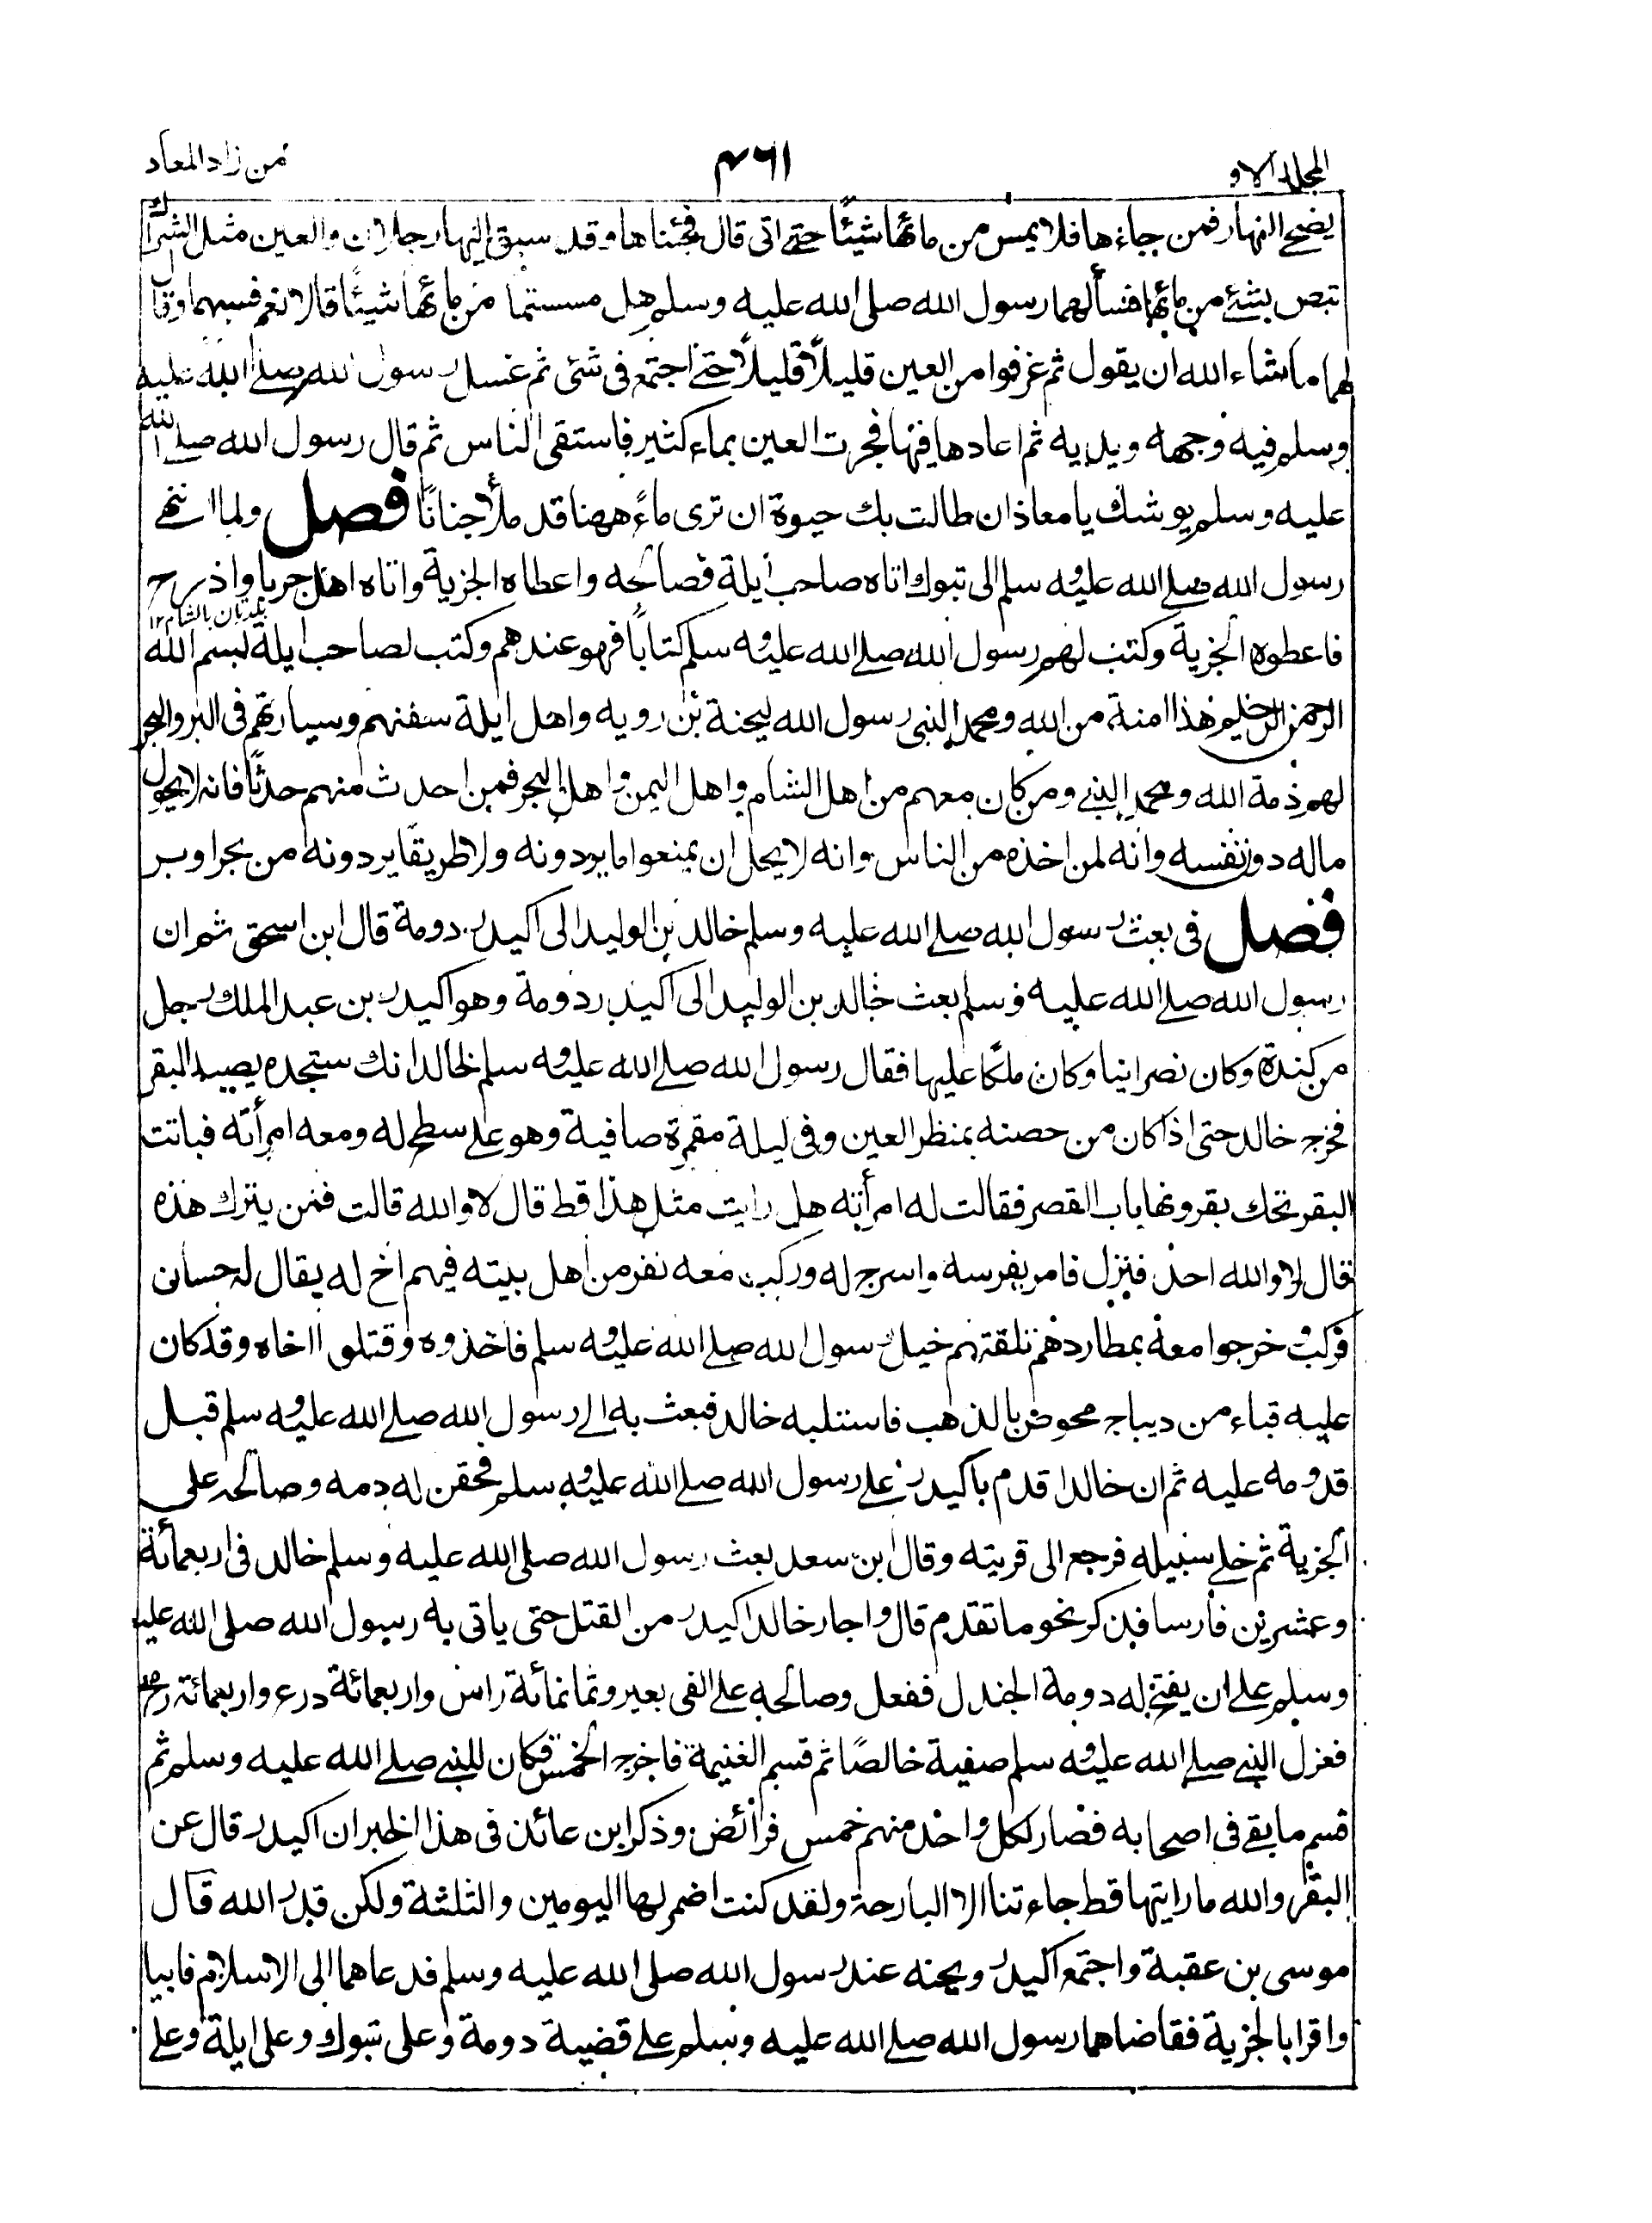 المجلد الاو
٤٦١
من زاد المعاد
يضحے النهار فمن جاءها فلا يمس من مائها شيئًا حتے اتى قال فجئناها وقد سبق اليها رجلان والعين مثل الشراك
تبض بشئ من مائها فسألهما رسول الله صلى الله عليه وسلم هل مسستما من مائها شيئًا قالا نعم فسبهما وقال
لهما ما شاء الله ان يقول ثم غرفوا من العين قليلًا قليلًا حتے اجتمع فى شئ ثم غسل رسول الله صلے الله عليه
وسلم فيه وجهه ويديه ثم اعادها فيها فجرت العين بماء كثير فاستقى الناس ثم قال رسول الله صلے الله
عليه وسلم يوشك يا معاذ ان طالت بك حيوة ان ترى ماءً ههنا قد ملأ جنانًا فصل ولما انتهے
رسول الله صلے الله عليه وسلم الى تبوك اتاه صاحب أيلة فصالحه واعطاه الجزية واتاه اهل جربا واذرح
بلدتان بالشام ١٢
فاعطوه الجزية وكتب لهم رسول الله صلے الله عليه وسلم كتابًا فهو عندهم وكتب لصاحب ايلة بسم الله
الرحمن الرحيم هذا امنة من الله ومحمد النبى رسول الله ليحنة بن رويه واهل ايلة سفنهم وسيارتهم فى البر والبحر
لهم ذمة الله ومحمد النبے ومن كان معهم من اهل الشام واهل اليمن واهل البحر فمن احدث منهم حدثًا فانه لا يحول
ماله دون نفسه وانه لمن اخذه من الناس وانه لا يحل ان يمنعوا ما يردونه ولا طريقًا يردونه من بحر او بر
فصل فى بعث رسول الله صلے الله عليه وسلم خالد بن الوليد الى اكيدر دومة قال ابن اسحق ثم ان
رسول الله صلے الله عليه وسلم بعث خالد بن الوليد الى اكيدر دومة وهو اكيدر بن عبد الملك رجل
من كندة وكان نصرانيا وكان ملكًا عليها فقال رسول الله صلے الله عليه وسلم لخالد انك ستجده يصيد البقر
فخرج خالد حتى اذا كان من حصنه بمنظر العين وفى ليلة مقمرة صافية وهو علے سطح له ومعه امرأته فباتت
البقر تحك بقرونها باب القصر فقالت له امرأته هل رايت مثل هذا قط قال لا والله قالت فمن يترك هذه
قال لا والله احد فنزل فامر بفرسه واسرج له وركب معه نفر من اهل بيته فيهم اخ له يقال له حسان
فركب وخرجوا معه بمطاردهم تلقتهم خيل رسول الله صلے الله عليه وسلم فاخذوه وقتلوا اخاه وقد كان
عليه قباء من ديباج محوض بالذهب فاستلبه خالد فبعث به الے رسول الله صلے الله عليه وسلم قبل
قدومه عليه ثم ان خالدا قدم باكيدر علے رسول الله صلے الله عليه وسلم فحقن له دمه وصالحه على
الجزية ثم خلے سبيله فرجع الى قريته وقال ابن سعد بعث رسول الله صلى الله عليه وسلم خالد فى اربعمائة
وعشرين فارسا فذكر نحو ما تقدم قال واجار خالد اكيدر من القتل حتى ياتى به رسول الله صلى الله عليه
وسلم علے ان يفتح له دومة الجندل ففعل وصالحه علے الفى بعير وثمانمائة راس واربعمائة درع واربعمائة رمح
فعزل النبے صلے الله عليه وسلم صفية خالصًا ثم قسم الغنيمة فاخرج الخمس فكان للنبے صلے الله عليه وسلم ثم
قسم ما بقے فى اصحابه فصار لكل واحد منهم خمس فرائض وذكر ابن عائذ فى هذا الخبر ان اكيدر قال عن
البقر والله ما رايتها قط جاءتنا الا البارحة ولقد كنت اضمر لها اليومين والثلثة ولكن قدر الله قال
موسى بن عقبة واجتمع اكيدر ويحنه عند رسول الله صلى الله عليه وسلم فدعاهما الى الاسلام فابيا
واقرا بالجزية فقاضاهما رسول الله صلے الله عليه وسلم علے قضية دومة وعلى تبوك وعلى ايلة وعلے